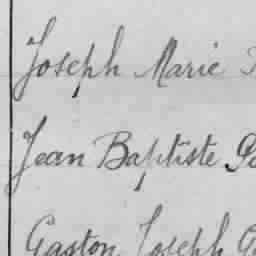 Joseph Marie
Jean Baptiste
Gaston Joseph